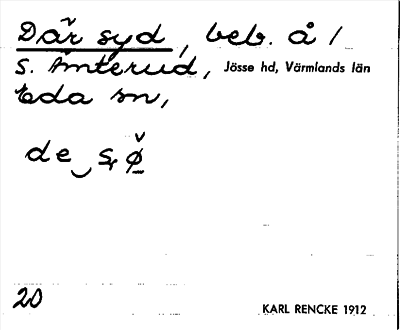 Där syd, beb. å /
S. Åmterud, Jösse hd, Värmlands län
Eda sn,
de
20
KARL RENCKE 1912